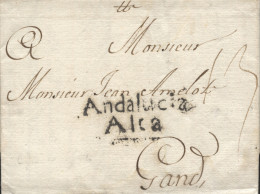 A Monsieur
Monsieur Jean Amelot
Andalucia
Alta
Gand